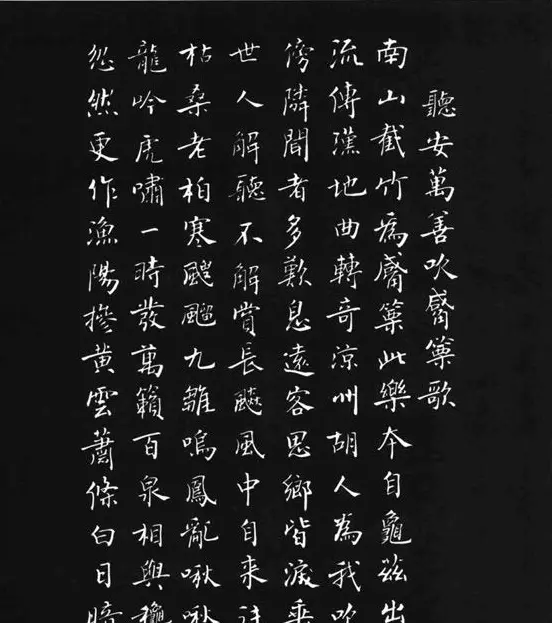 聽安萬善吹觱篥歌
南山截竹爲觱篥此樂本自龜茲出
流傳漢地曲轉奇涼州胡人為我吹
傍隣聞者多歎息遠客思鄉皆淚垂
世人解聽不解賞長飆風中自來往
枯桑老柏寒颼飀九雛鳴鳳亂啾啾
龍吟虎嘯一時發萬籟百泉相與
忽然更作漁陽摻黃雲蕭條白日暗